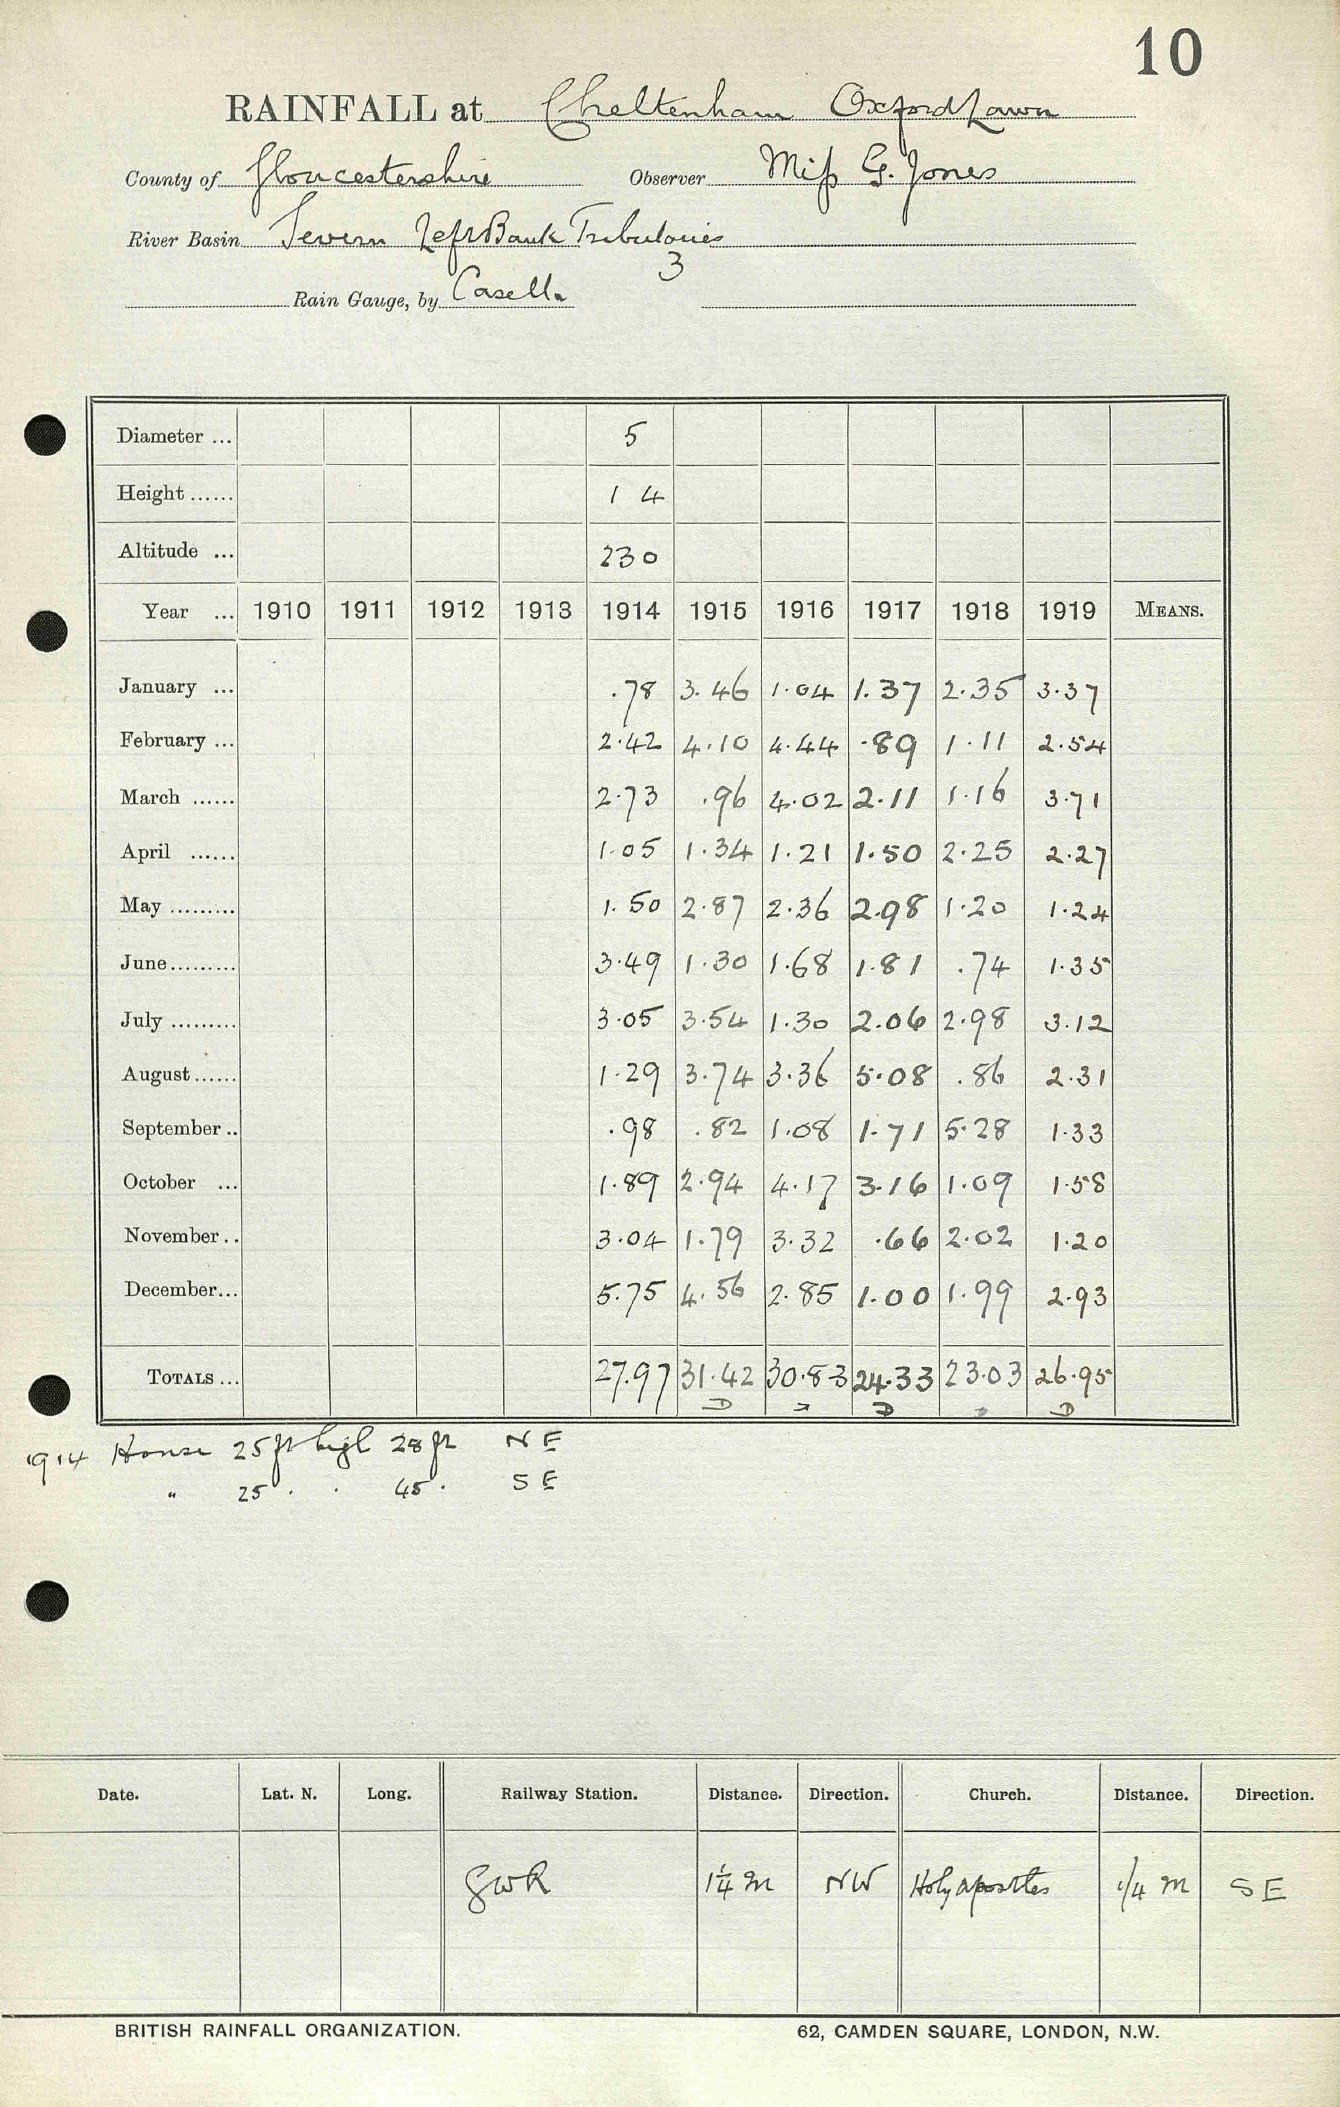 10
RAINFALL at Cheltenham Oxford Lawn
County of Gloucestershire Observer Miss G. Jones
River Basin Severn Left Bank Tributaries
3
Rain Gauge, by Casella
Diameter ... 5
Height ...... 1 4
Altitude ... 230
Year ... 1910 1911 1912 1913 1914 1915 1916 1917 1918 1919 MEANS.
January ... .78 3.46 1.04 1.37 2.35 3.37
February ... 2.42 4.10 4.44 .89 1.11 2.54
March ...... 2.73 .96 4.02 2.11 1.16 3.71
April ...... 1.05 1.34 1.21 1.50 2.25 2.27
May ......... 1.50 2.87 2.36 2.98 1.20 1.24
June......... 3.49 1.30 1.68 1.81 .74 1.35
July ......... 3.05 3.54 1.30 2.06 2.98 3.12
August...... 1.29 3.74 3.36 5.08 .86 2.31
September .. .98 .82 1.08 1.71 5.28 1.33
October ... 1.89 2.94 4.17 3.16 1.09 1.58
November .. 3.04 1.79 3.32 .66 2.02 1.20
December... 5.75 4.56 2.85 1.00 1.99 2.93
TOTALS ... 27.97 31.42 30.83 24.33 23.03 26.95
1914 House 25 ft high 28 ft NE
" 25 . . 45 . SE
Date. Lat. N. Long. Railway Station. Distance. Direction. Church. Distance. Direction.
GWR 1¼ m NW Holy Apostles 1/4 m SE
BRITISH RAINFALL ORGANIZATION. 62, CAMDEN SQUARE, LONDON, N.W.